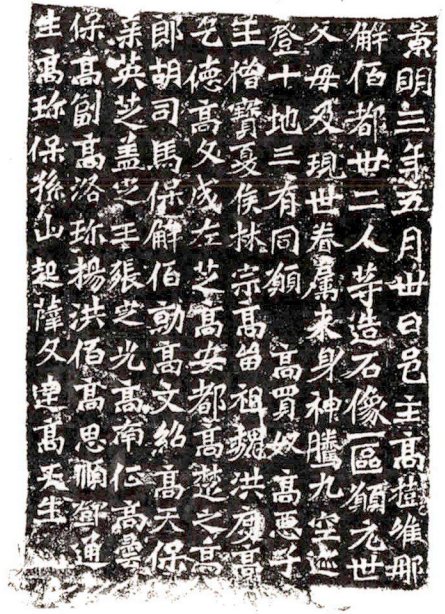 景明三年五月卅日邑主高樹維那
解佰都卅二人等造石像一區願元世
父母及現世眷屬來身神騰九空迹
登十地三有同願 高買奴 高惡子
王僧寶夏侯林宗高留祖魏洪度高
乞德高文成左芝高安都高楚之高
郎胡司馬保解伯勳高文紹高天保
英芝蓋芝王張芝光高南高曇
保高副高洛珍楊洪佰高思順鄧通
生高珍保孫山起薛文達高天生